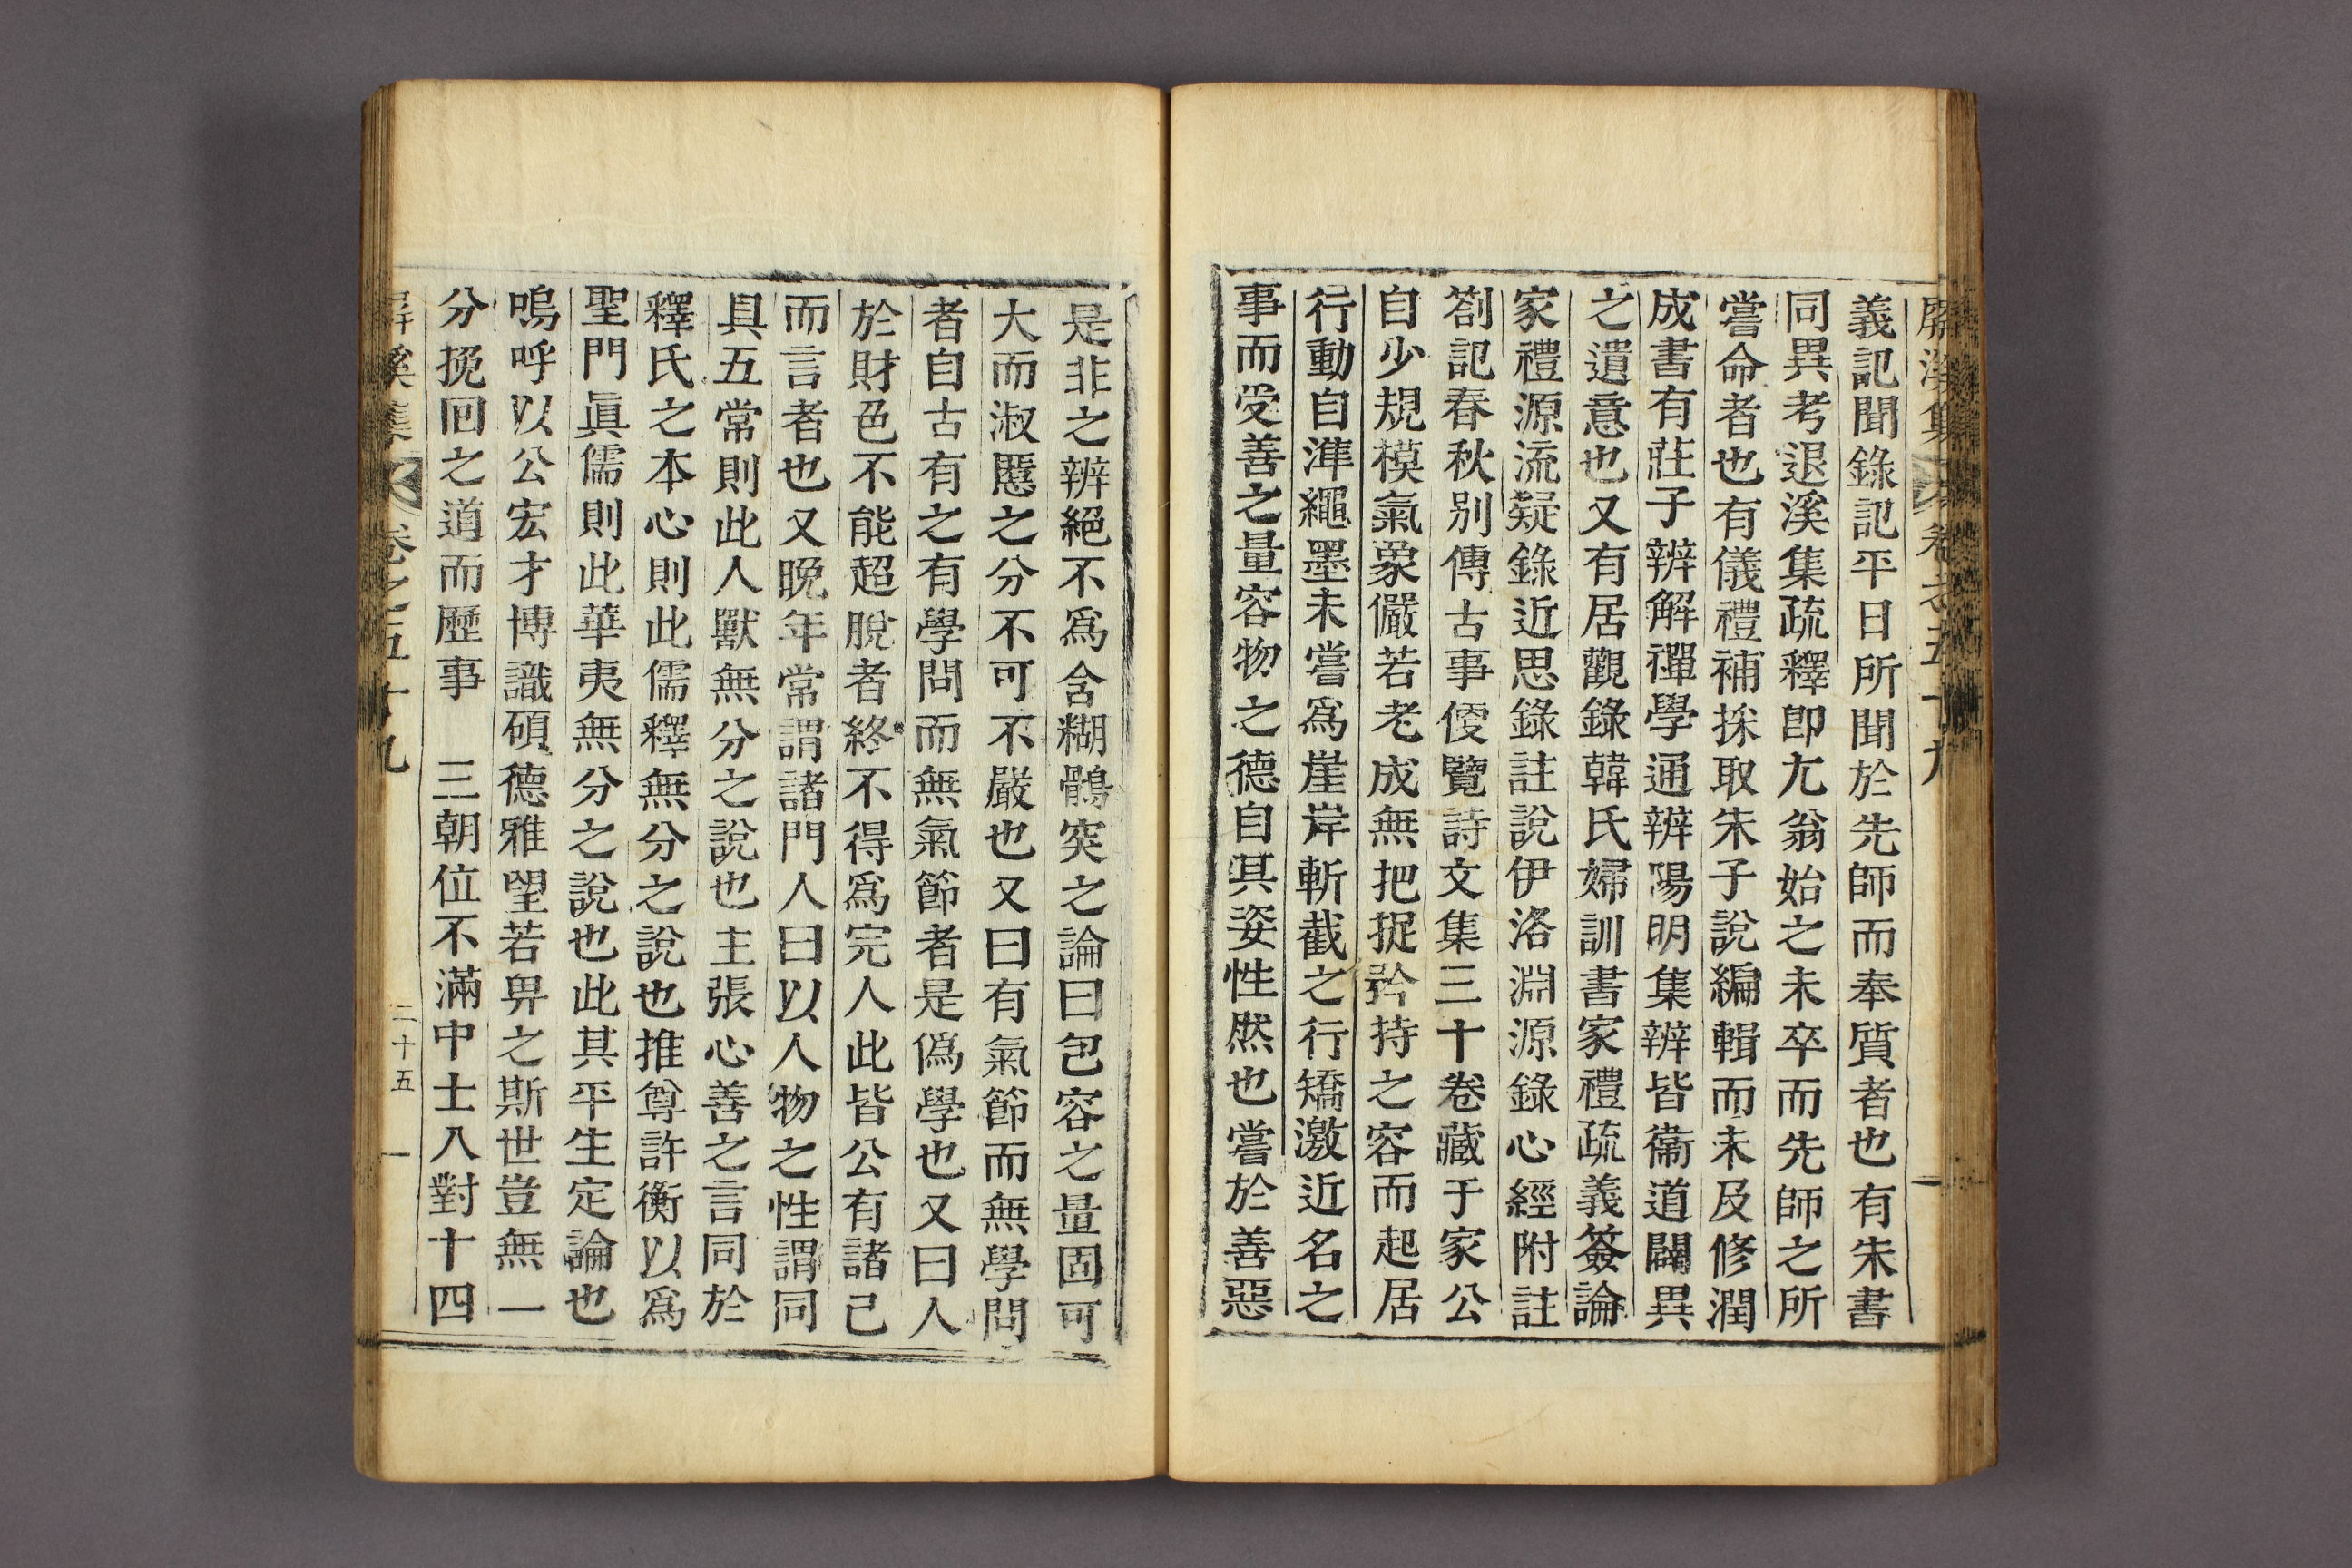 屛溪集 卷之五十九
義記聞錄記平日所聞於先師而奉質者也有朱書
同異考退溪集疏釋卽尤翁始之未卒而先師之所
嘗命者也有儀禮補採取朱子說編輯而未及修潤
成書有莊子辨解禪學通辨陽明集辨皆衞道闢異
之遺意也又有居觀錄韓氏婦訓書家禮疏義簽論
家禮源流疑錄近思錄註說伊洛淵源錄心經附註
劄記春秋別傳古事便覽詩文集三十卷藏于家公
自少規模氣象儼若老成無把捉矜持之容而起居
行動自準繩墨未嘗爲崖岸斬截之行矯激近名之
事而受善之量容物之德自其姿性然也嘗於善惡
是非之辨絕不爲含糊鶻突之論曰包容之量固可
大而淑慝之分不可不嚴也又曰有氣節而無學問
者自古有之有學問而無氣節者是僞學也又曰人
於財色不能超脫者終不得爲完人此皆公有諸己
而言者也又晩年常謂諸門人曰以人物之性謂同
具五常則此人獸無分之說也主張心善之言同於
釋氏之本心則此儒釋無分之說也推尊許衡以爲
聖門眞儒則此華夷無分之說也此其平生定論也
嗚呼以公宏才博識碩德雅望若畀之斯世豈無一
分挽回之道而歷事　三朝位不滿中士八對十四
屛溪集 卷之五十九 二十五